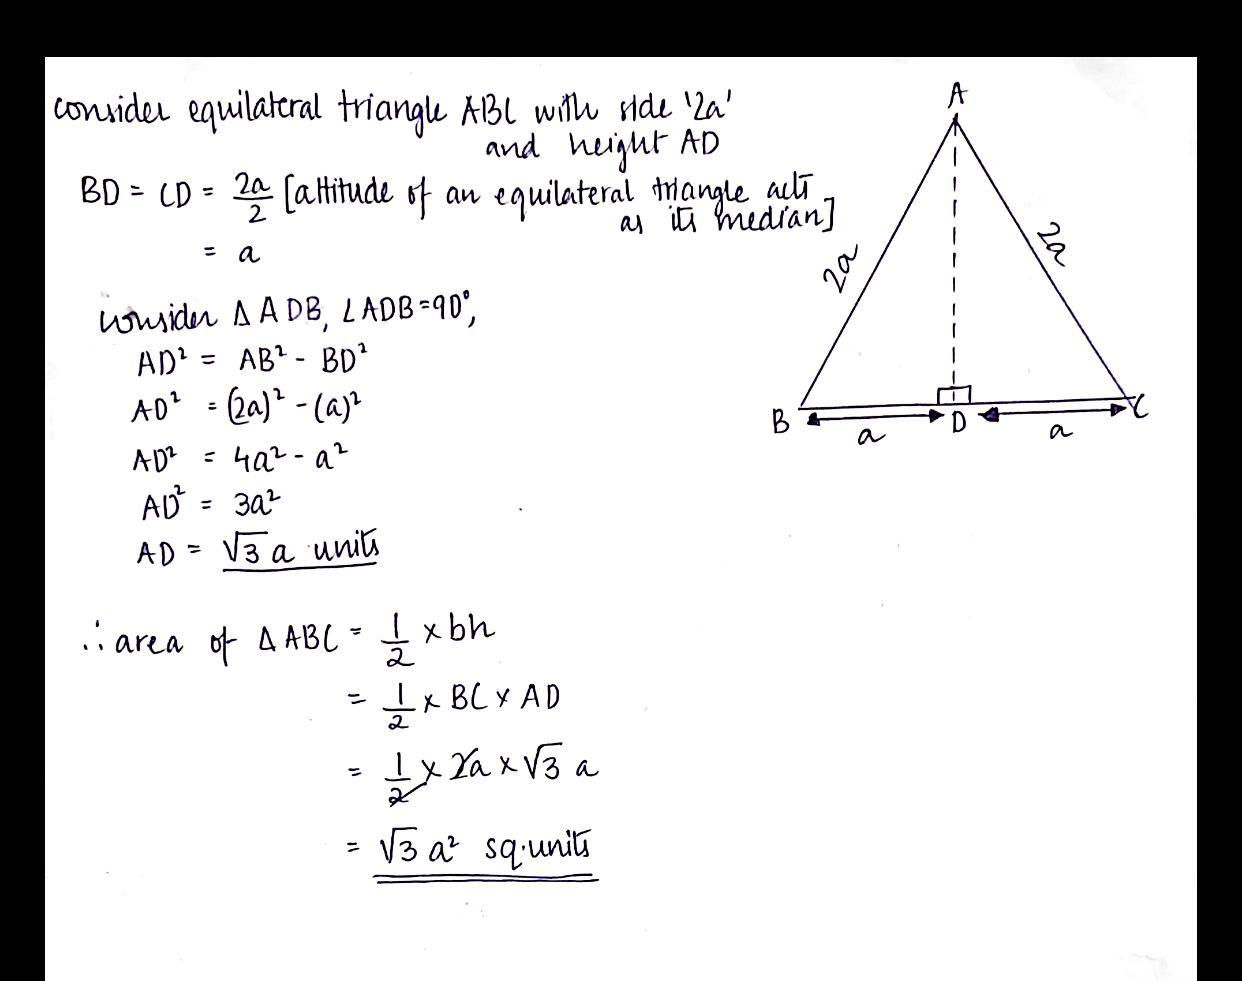 consider equilateral triangle ABC with side '2a'
and height AD
BD = CD = 2a/2 [altitude of an equilateral triangle acts
as its median]
= a
consider Δ ADB, ∠ADB=90°,
AD² = AB² - BD²
AD² = (2a)² - (a)²
AD² = 4a² - a²
AD² = 3a²
AD = √3 a units
∴ area of Δ ABC = 1/2 × bh
= 1/2 × BC × AD
= 1/2 × 2a × √3 a
= √3 a² sq.units
A
2a
2a
B
D
C
a
a